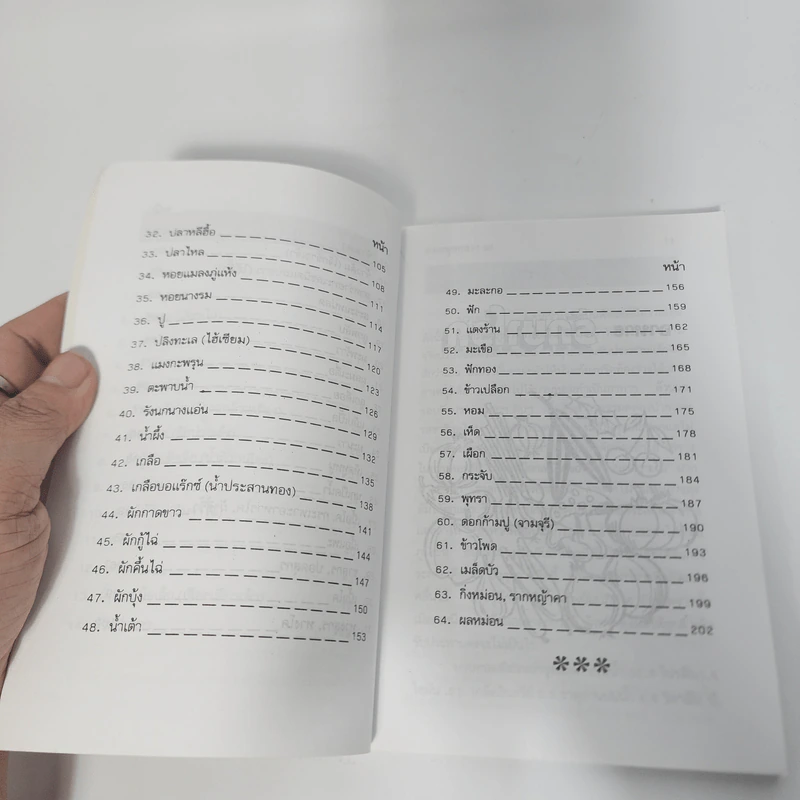 หน้า
32. ปลาหลีฮื้อ 105
33. ปลาไหล 108
34. หอยแมลงภู่แห้ง 111
35. หอยนางรม 114
36. ปู 117
37. ปลิงทะเล (ไฮ้เซียม) 120
38. แมงกะพรุน 123
39. ตะพาบน้ำ 126
40. รังนกนางแอ่น 129
41. น้ำผึ้ง 132
42. เกลือ 135
43. เกลือบอแร๊กซ์ (น้ำประสานทอง) 138
44. ผักกาดขาว 141
45. ผักกู้ไฉ่ 144
46. ผักคื้นไฉ่ 147
47. ผักบุ้ง 150
48. น้ำเต้า 153
หน้า
49. มะละกอ 156
50. ฟัก 159
51. แตงร้าน 162
52. มะเขือ 165
53. ฟักทอง 168
54. ข้าวเปลือก 171
55. หอม 175
56. เห็ด 178
57. เผือก 181
58. กระจับ 184
59. พุทรา 187
60. ดอกก้ามปู (จามจุรี) 190
61. ข้าวโพด 193
62. เมล็ดบัว 196
63. กิ่งหม่อน, รากหญ้าคา 199
64. ผลหม่อน 202
***